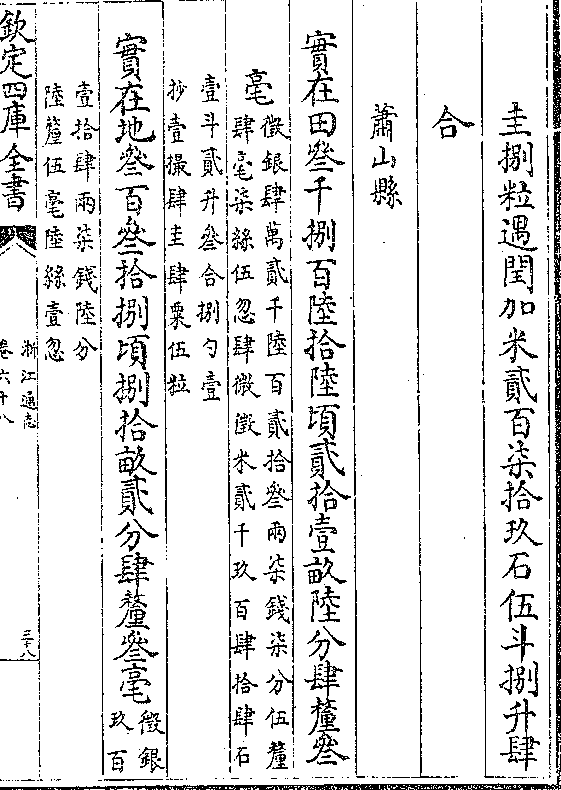 圭捌粒遇閏加米貳百柒拾玖石伍斗捌升肆
合
蕭山縣
實在田叄千捌百陸拾陸頃貳拾壹畝陸分肆釐叄
毫
徵銀肆萬貳千陸百貳拾叄兩柒錢柒分伍釐
肆毫柒絲伍忽肆微徵米貳千玖百肆拾肆石
壹斗貳升叄合捌勺壹
抄壹撮肆圭肆粟伍粒
實在地叄百叄拾捌頃捌拾畝貳分肆釐叄毫
徵銀
玖百
壹拾肆兩柒錢陸分
陸釐伍毫陸絲壹忽
欽定四庫全書
浙江通志
卷六十八
三十八